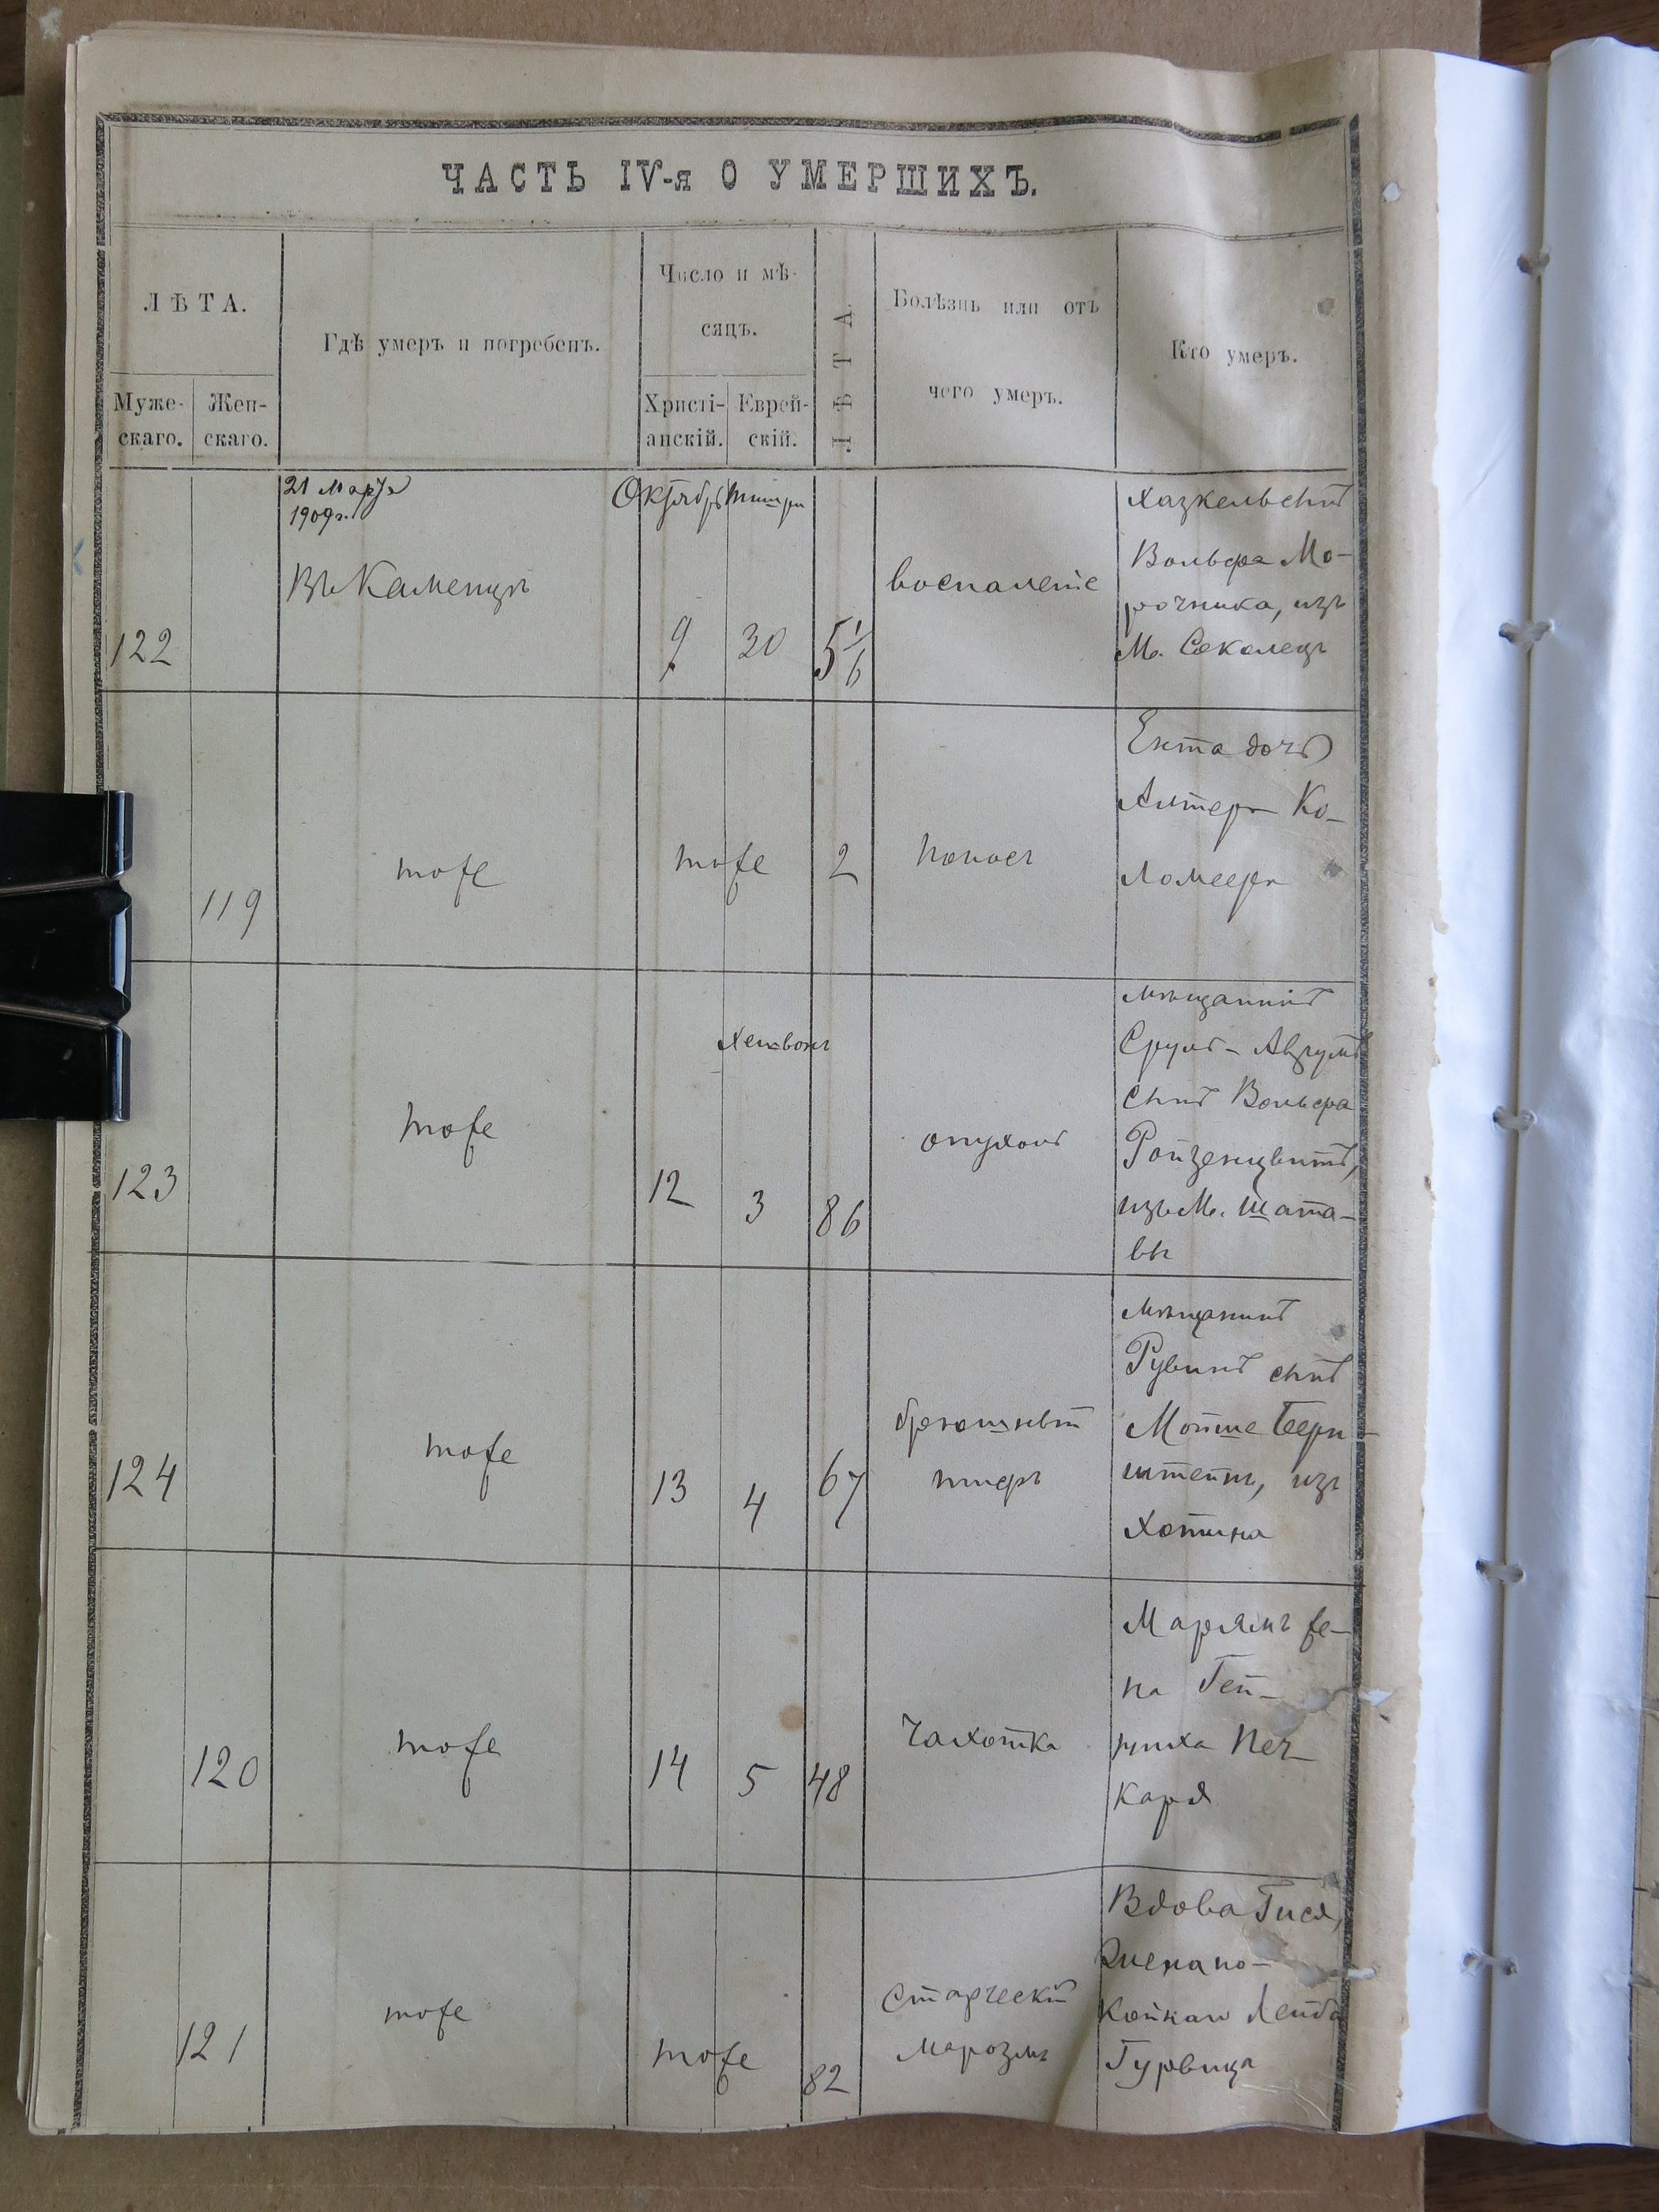 ЧАСТЬ IV-я О УМЕРШИХЪ.
ЛѢТА.
Муже-
скаго.
Жен-
скаго.
Гдѣ умеръ и погребенъ.
Число и мѣ-
сяцъ.
Христі-
анскій.
Еврей-
скій.
ЛѢТА.
Болѣзнь или отъ
чего умеръ.
Кто умеръ.
21 Марта
1909г.
Октябрь Тишри
122
Въ Каменцѣ
9
30
5 1/6
воспаленіе
Хазкель сынъ
Вольфа Мо-
рочника, изъ
М.
119
тоже
тоже
2
поносъ
Ента дочь
Алтера Ко-
ломеера
Хешвонъ
123
тоже
12
3
86
опухоль
мѣщанинъ
Сруль-Аврумъ
сынъ Вольфа
Ройзенцвитъ,
изъ М. Шата-
вы
124
тоже
13
4
67
брюшный
тифъ
мѣщанинъ
Рувинъ сынъ
Мойше Бери-
штейнъ, изъ
Хотина
120
тоже
14
5
48
Чахотка
Марьямъ же-
на Гей-
ниха Печ-
каря
121
тоже
тоже
82
Старческій
Марозмъ
Вдова Гися,
жена по-
койнаго Лейба
Гурвица